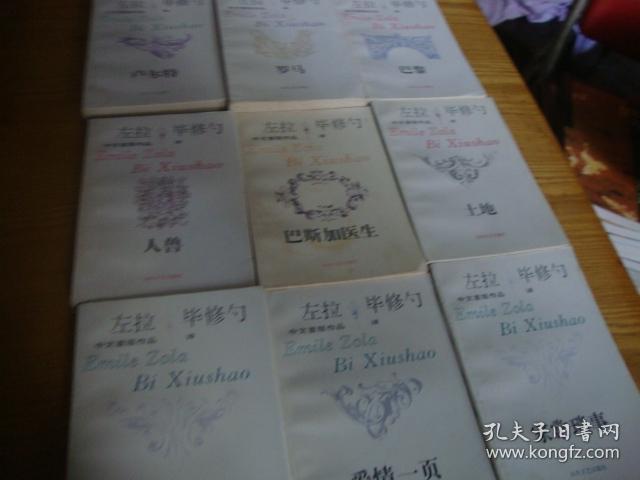 卢尔特
Bi Xiushao
罗马
Bi Xiushao
巴黎
左拉 毕修勺
中文重版作品 译
Emile Zola
Bi Xiushao
人兽
左拉 毕修勺
中文重版作品 译
Emile Zola
Bi Xiushao
巴斯加医生
左拉 毕修勺
中文重版作品 译
Emile Zola
Bi Xiushao
土地
左拉 毕修勺
中文重版作品 译
Emile Zola
Bi Xiushao
左拉 毕修勺
中文重版作品 译
Emile Zola
Bi Xiushao
爱情一页
左拉 毕修勺
中文重版作品 译
Emile Zola
Bi Xiushao
孔夫子旧书网
www.kongfz.com